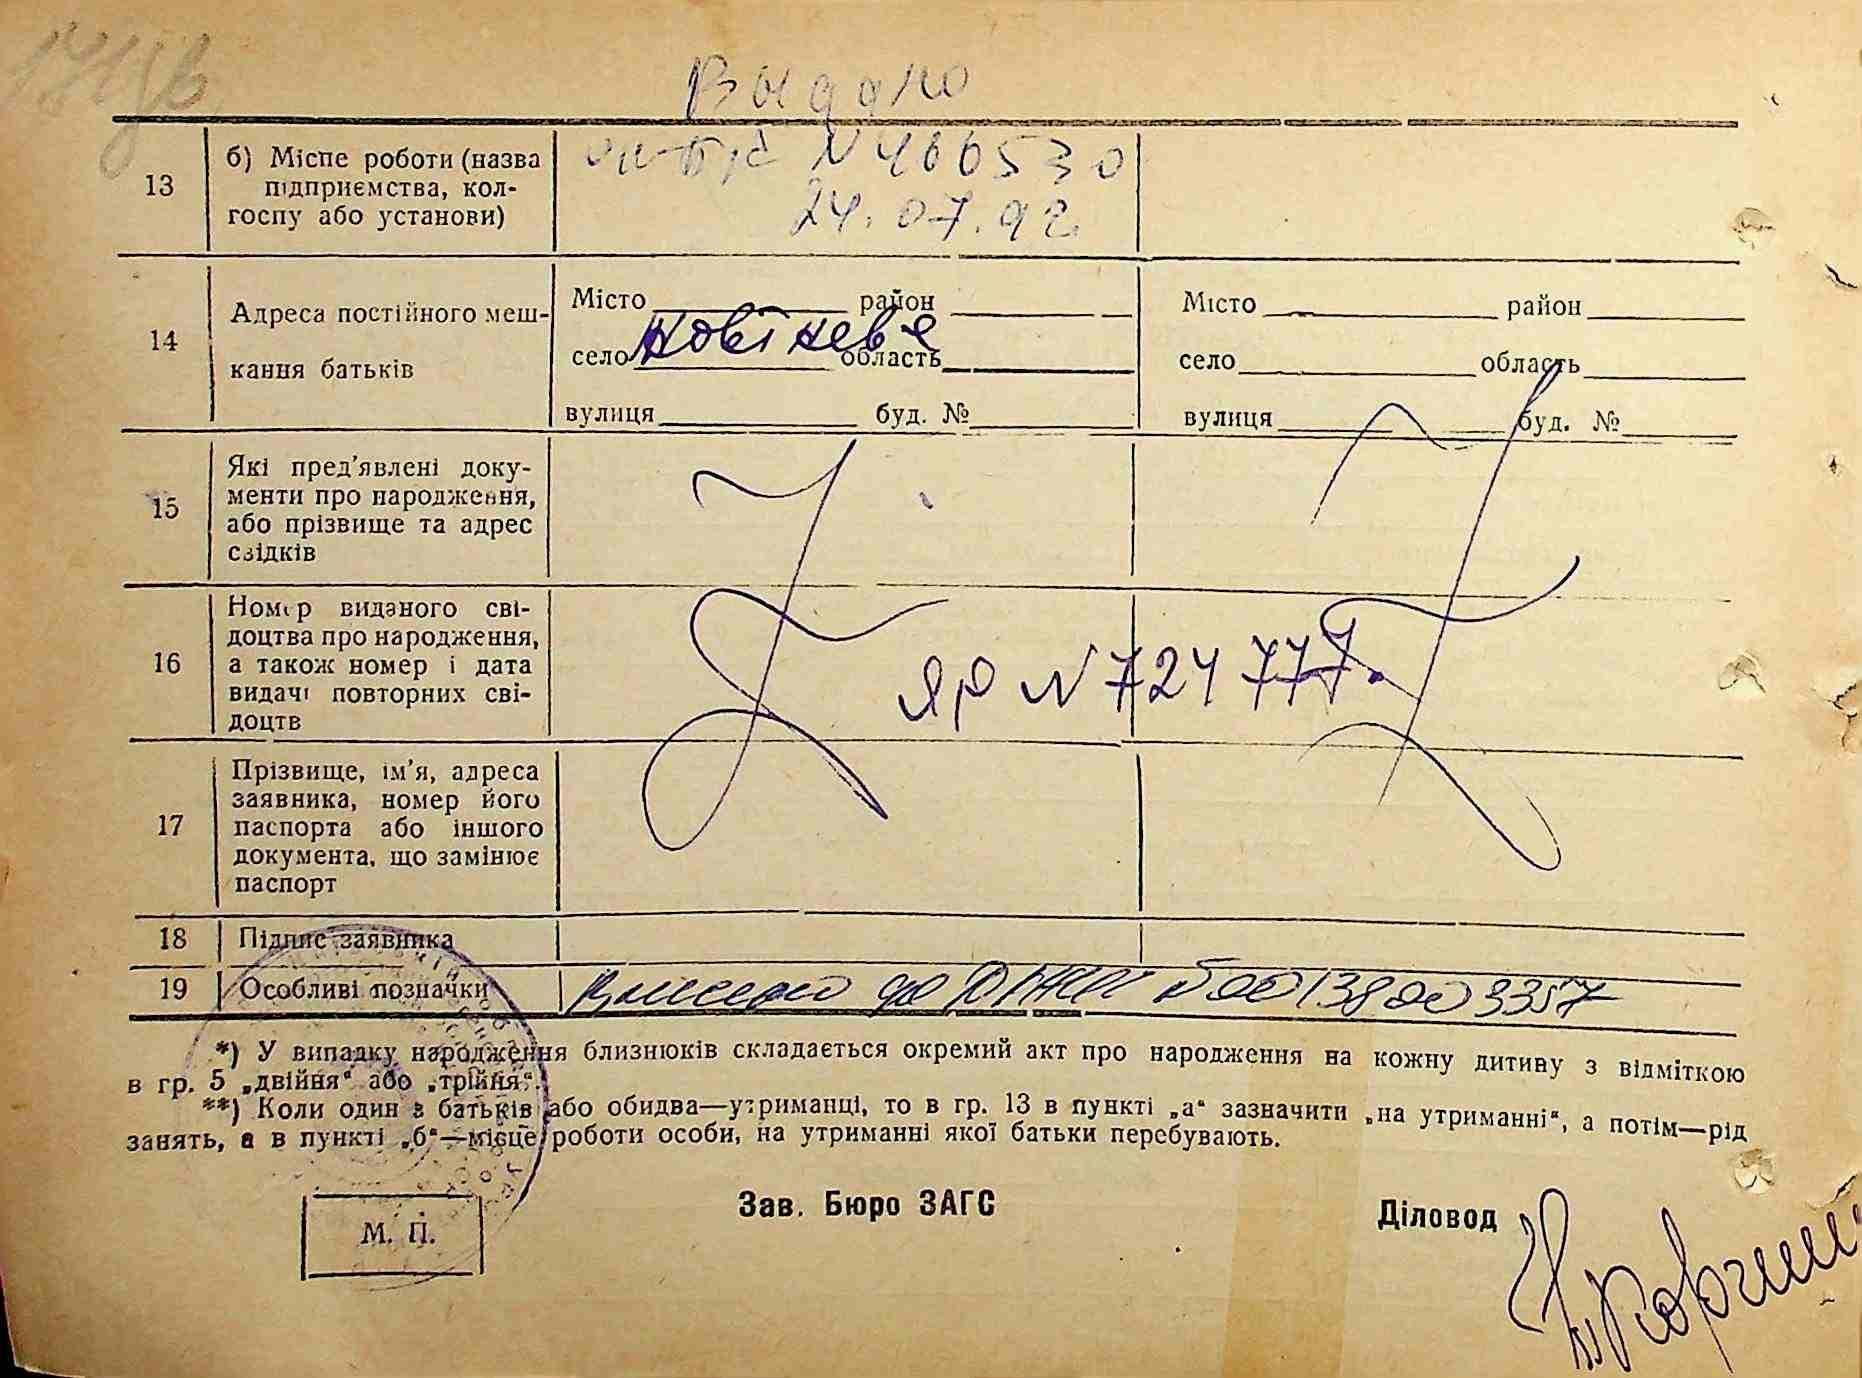 Выдано
13
б) Місце роботи (назва
підприємства, кол-
госпу або установи)
N 466530
24.07.92
14
Адреса постійного меш-
кання батьків
Місто район
село Новінєвє область
вулиця буд. №
Місто район
село область
вулиця буд. №
15
Які пред'явлені доку-
менти про народження,
або прізвище та адрес
свідків
16
Номер виданого сві-
доцтва про народження,
а також номер і дата
видачі повторних сві-
доцтв
ЯР N 724 777.
17
Прізвище, ім'я, адреса
заявника, номер його
паспорта або іншого
документа, що замінює
паспорт
18
Підпис заявника
19
Особливі позначки
до N 00138003357
*) У випадку народження близнюків складається окремий акт про народження на кожну дитину з відміткою
в гр. 5 „двійня“ або „трійня“.
**) Коли один з батьків або обидва—утриманці, то в гр. 13 в пункті „а“ зазначити „на утриманні“, а потім—рід
занять, а в пункті „б“—місце роботи особи, на утриманні якої батьки перебувають.
М. П.
Зав. Бюро ЗАГС
Діловод